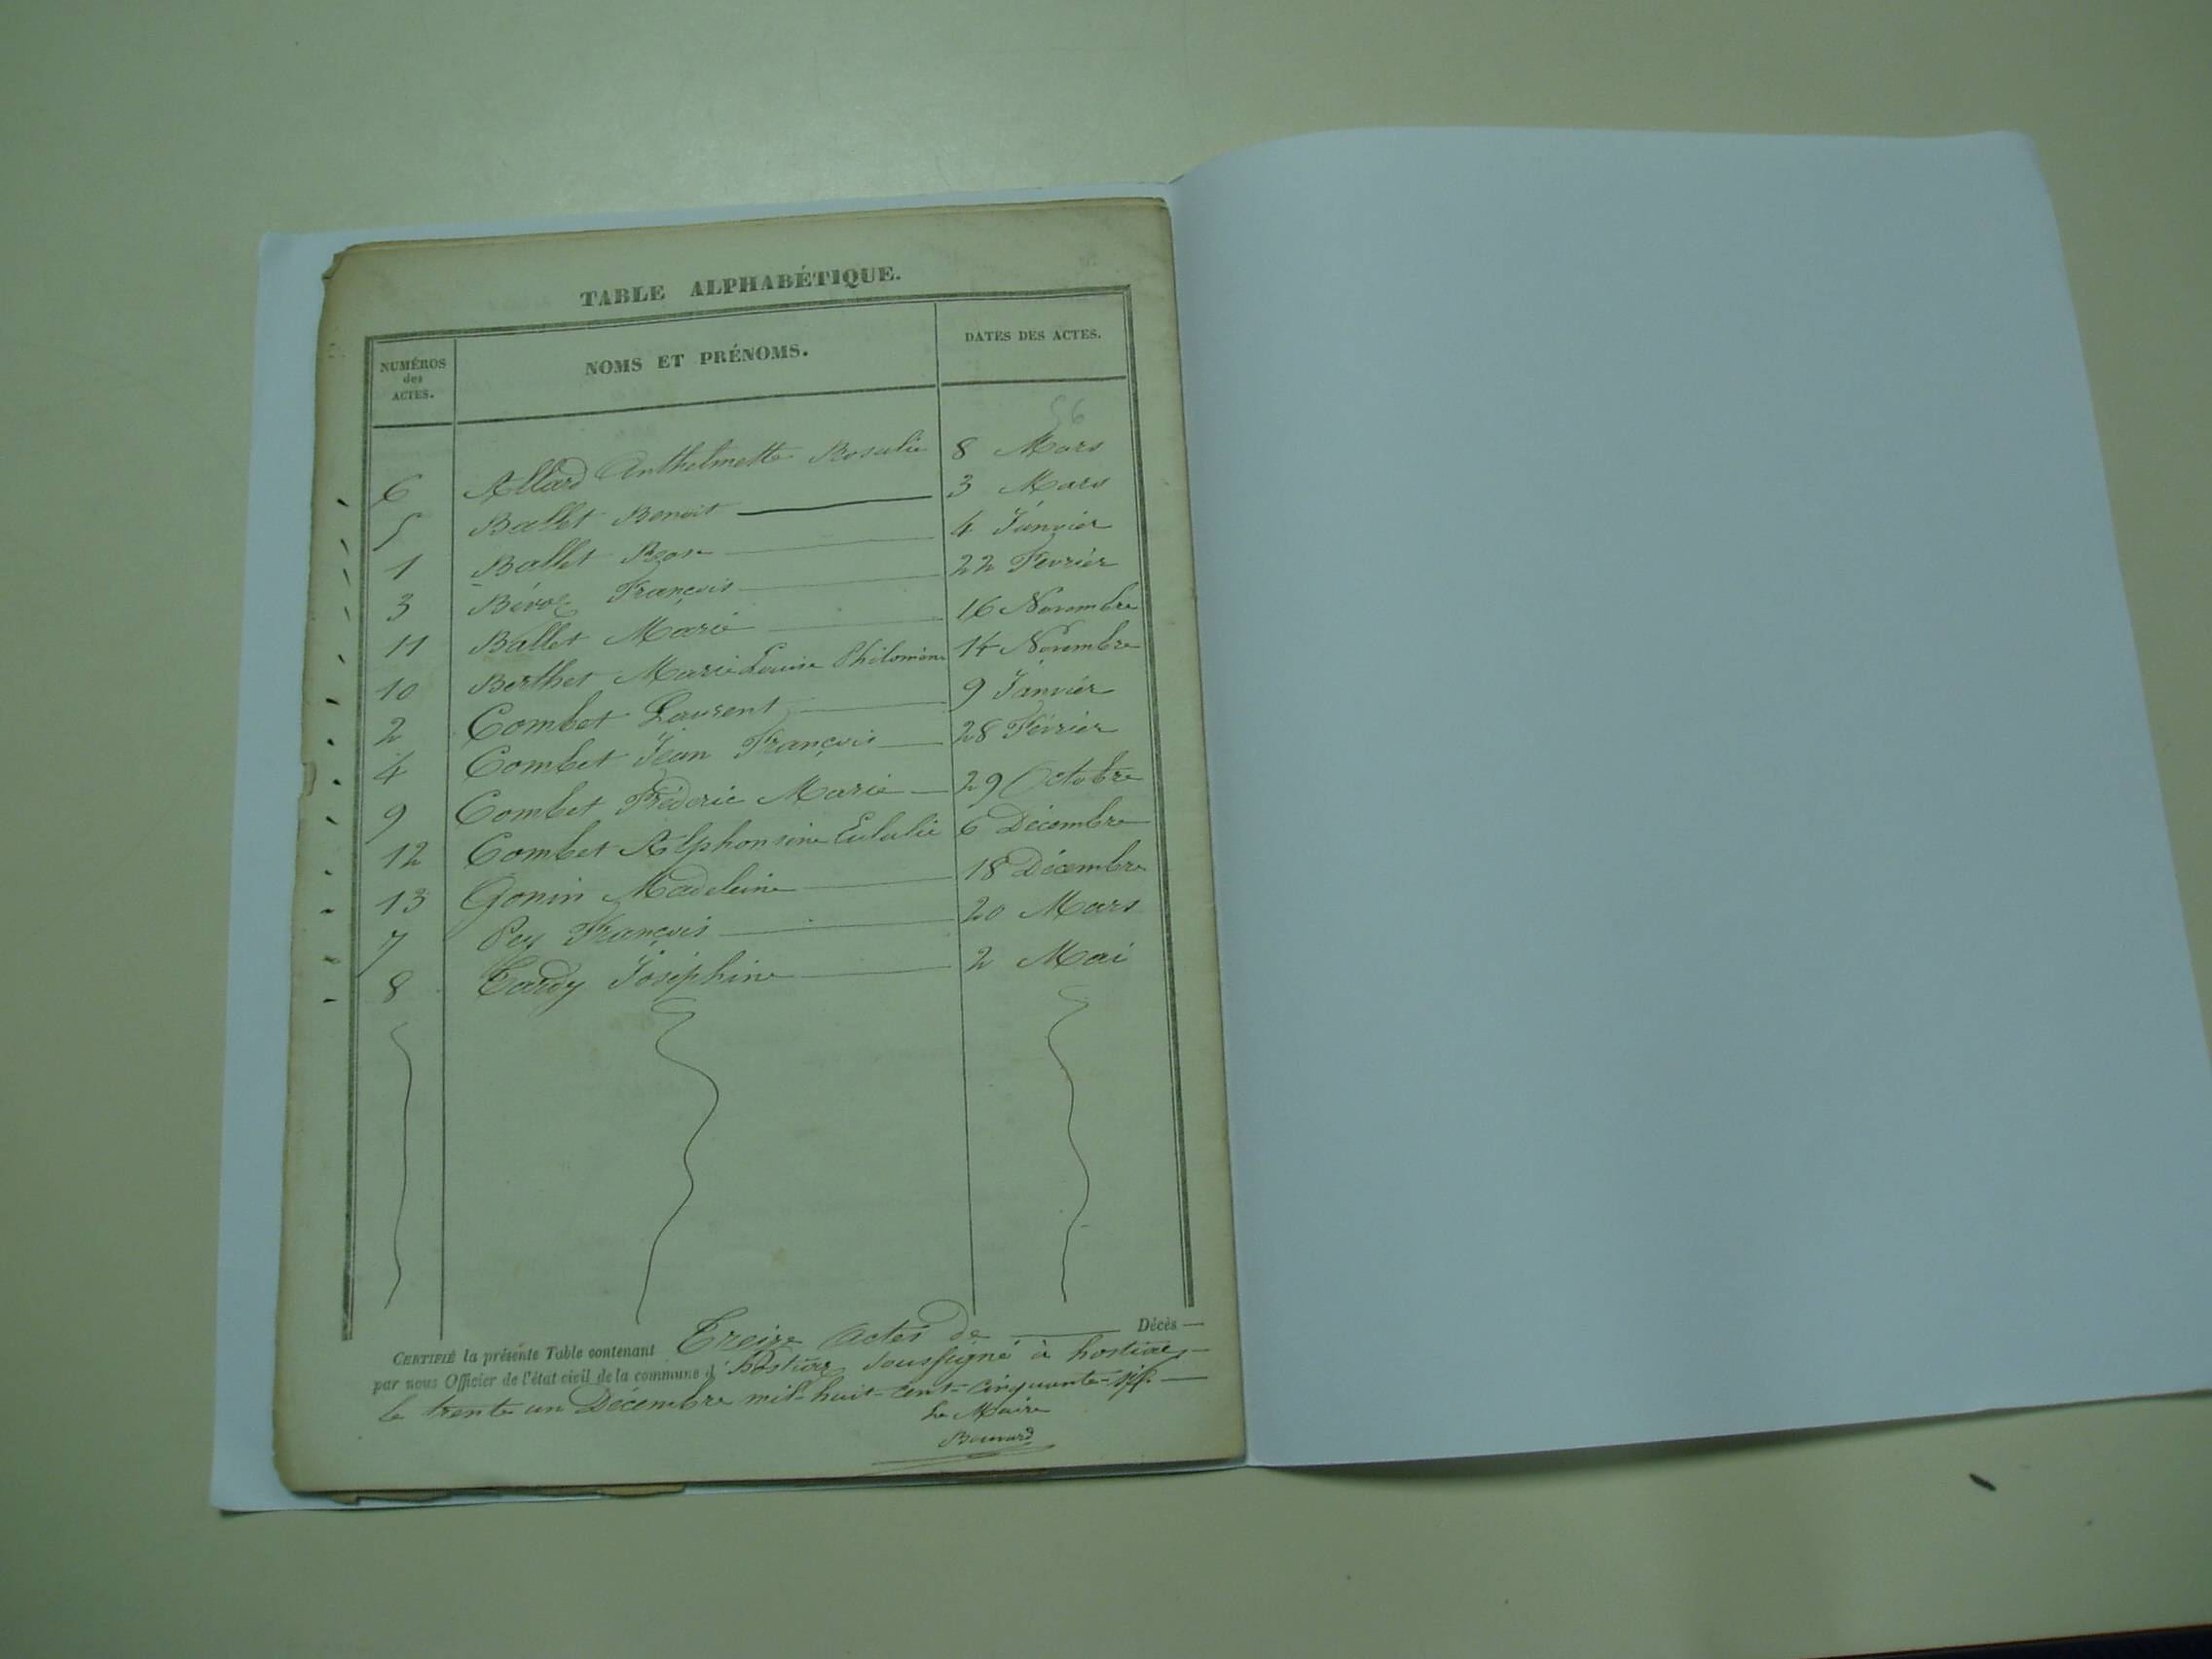 TABLE ALPHABÉTIQUE.
NUMÉROS des ACTES. NOMS ET PRÉNOMS. DATES DES ACTES.
56
6 Allard Anthelmette Rosalie 8 Mars
5 Ballet Benoit 3 Mars
1 Ballet 4 Janvier
3 François 22 Fevrier
11 Ballet Marie 16 Novembre
10 Berthet Marie Louise Philomène 14 Novembre
2 Combet Laurent 9 Janvier
4 Combet Jean François 28 Février
9 Combet Fréderic Marie 29 Octobre
12 Combet Alphonsine Eulalie 6 Décembre
13 Gonin Madeleine 18 Décembre
7 Pey François 20 Mars
8 Tardy Joséphine 2 Mai
CERTIFIÉ la présente Table contenant Treize actes de Décès
par nous Officier de l'état civil de la commune d'hostiaz soussigné à hostiaz
le trente un Décembre mil-huit-cent-cinquante-six
Le Maire